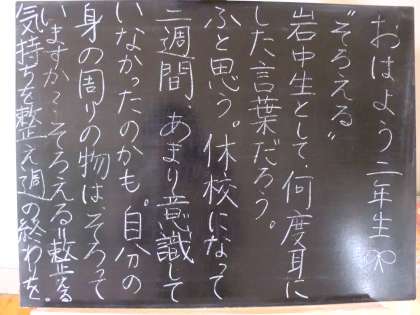 おはよう二年生
"そろえる"
岩中生として、何度身に
した言葉だろう。
ふと思う。休校になって
二週間、あまり意識して
いなかったのかも。自分の
身の周りの物は、そろって
いますか?そろえる=整える
気持ちを整え週の終わりを。